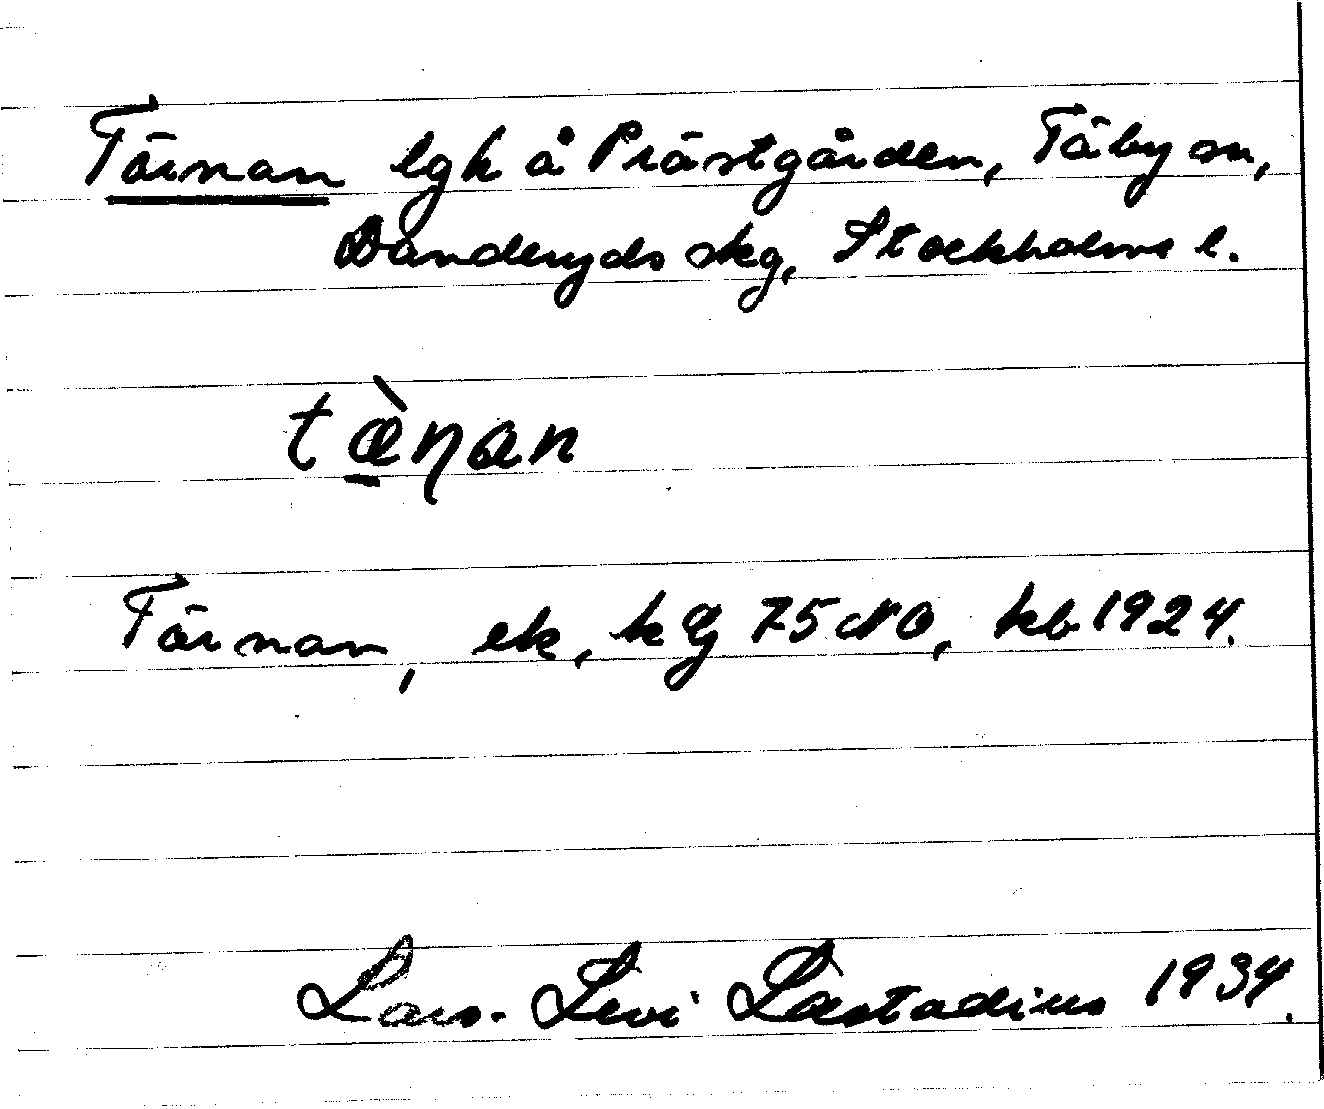 Tärnan lgh å Prästgården, Täby sn,
Danderyds skg, Stockholms l.
tæ̠̀ɳan
Tärnan, ek, kg 75 NO, kb 1924.
Lars-Levi Læstadius 1934.